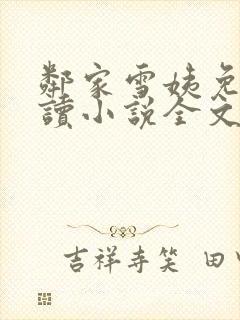 鄰家雪姨免
讀小說全文
吉祥寺笑 田